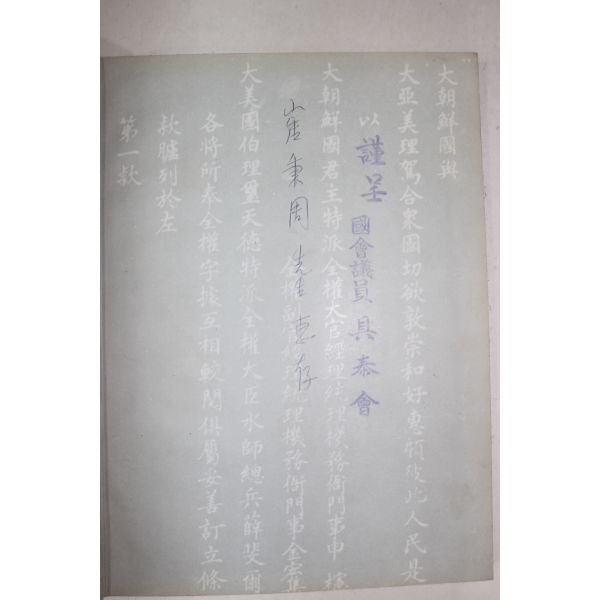 大朝鮮國與
大亞美理駕合衆國切欲敦崇和好惠顧彼此人民是
以
謹呈
國會議員 具泰會
大朝鮮國君主特派全權大官經理統理機務衙門事申櫶
崔秉周 先生 惠存
全權副官經理統理機務衙門事金宏集
大美國伯理璽天德特派全權大臣水師總兵薛斐爾
各將所奉全權字據互相較閱俱屬妥善訂立條
款臚列於左
第一款